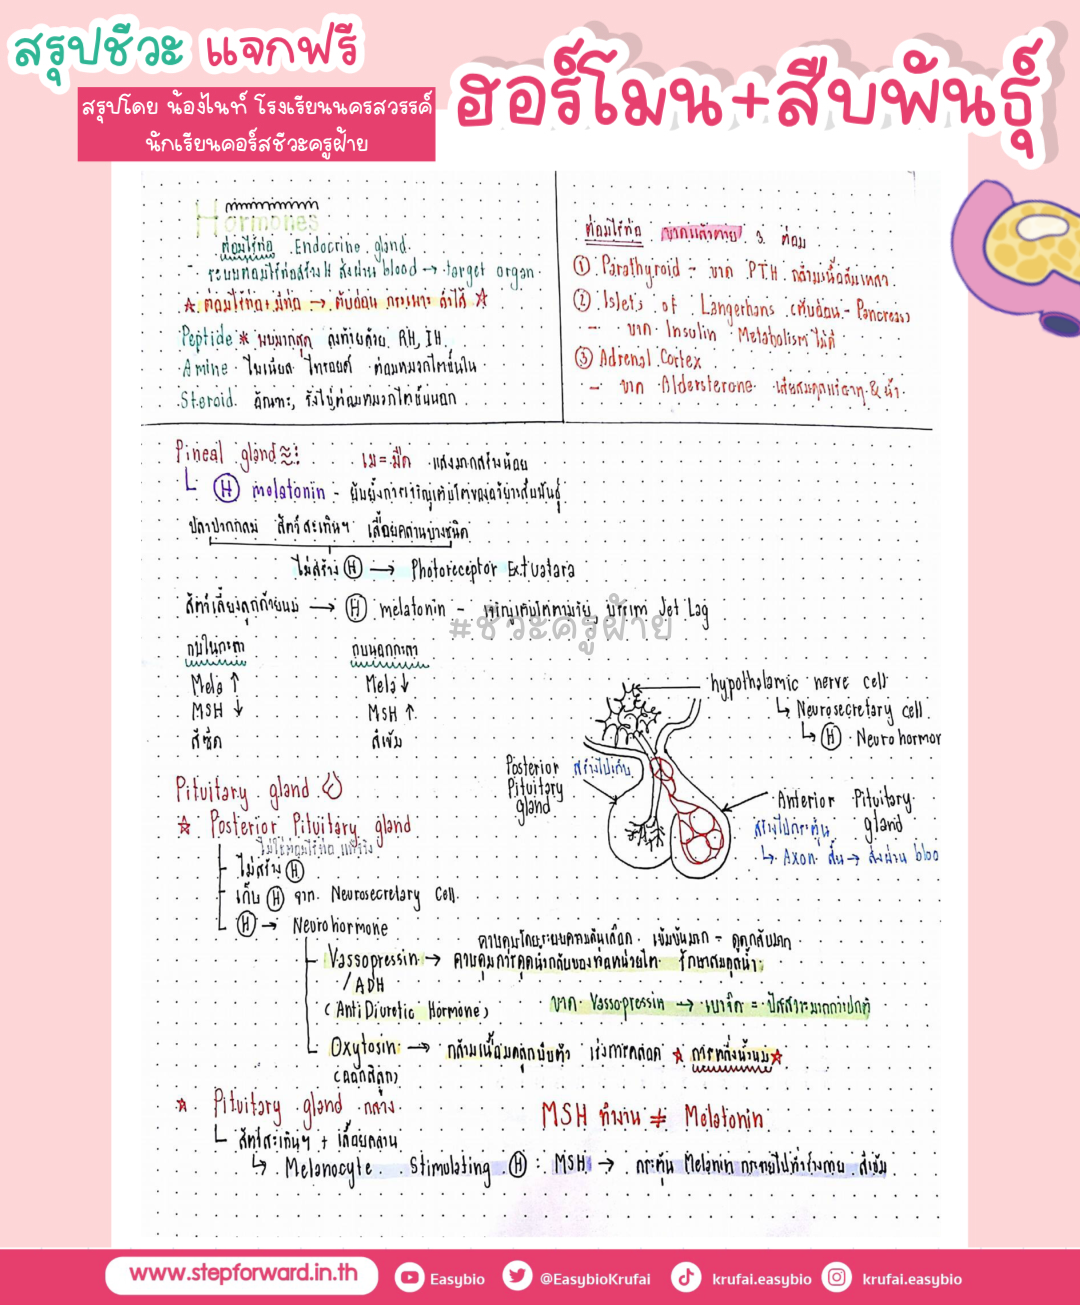 สรุปชีวะ แจกฟรี
สรุปโดย น้องไนท์ โรงเรียนนครสวรรค์
นักเรียนคอร์สชีวะครูฝ้าย
ฮอร์โมน+สืบพันธุ์
Hormones
ต่อมไร้ท่อ Endocrine gland.
ระบบต่อมไร้ท่อสร้าง H ส่งผ่าน blood → target organ.
☆ ต่อมไร้ท่อ+มีท่อ → ตับอ่อน กระเพาะ ลำไส้ ☆
Peptide * พบมากสุด ลงท้ายด้วย RH, IH
Amine ไพเนียล ไทรอยด์ ต่อมหมวกไตชั้นใน
Steroid. อัณฑะ, รังไข่ ต่อมหมวกไตชั้นนอก
ต่อมไร้ท่อ ขาดแล้วตาย 3 ต่อม
① Parathyroid - ขาด PTH กล้ามเนื้อ
② Islets of Langerhans (ตับอ่อน - Pancreas)
- ขาด Insulin Metabolism ไม่ดี
③ Adrenal Cortex
- ขาด Aldersterone เสียสมดุลแร่ธาตุ & น้ำ
Pineal gland
เม = มืด แสงมากสร้างน้อย
Ⓗ melatonin - ยับยั้งการเจริญเติบโตของอวัยวะสืบพันธุ์
ปลาปากกลม สัตว์สะเทินฯ เลื้อยคลานบางชนิด
ไม่สร้าง Ⓗ → Photoreceptor Extuatara
สัตว์เลี้ยงลูกด้วยนม → Ⓗ melatonin - เจริญเติบโตตามวัย, บรรเทา Jet Lag
#ชีวะครูฝ้าย
กบในกะลา กบนอกกะลา
Mela ↑ Mela ↓
MSH ↓ MSH ↑
สีซีด สีเข้ม
hypothalamic nerve cell
↳ Neurosecretary cell.
↳ Ⓗ Neurohormor
Posterior Pituitary gland
สร้างไปเก็บ
Anterior Pituitary gland
สร้างไปกระตุ้น
↳ Axon สั้น → ส่งผ่าน bloo
Pituitary gland
☆ Posterior Pituitary gland
ไม่ใช่ต่อมไร้ท่อ แท้จริง
ไม่สร้าง Ⓗ
เก็บ Ⓗ จาก Neurosecretary Cell.
Ⓗ → Neurohormone
ควบคุมโดยระบบความดันเลือด เข้มข้นมาก - ดูดกลับมาก
Vassopressin → ควบคุมการดูดน้ำกลับของท่อหน่วยไต รักษาสมดุลน้ำ
/ADH
(Anti Diuretic Hormone)
ขาด Vassopressin → เบาจืด = ปัสสาวะมากกว่าปกติ
Oxytosin → กล้ามเนื้อมดลูกบีบตัว เร่งการคลอด ☆ การหลั่งน้ำนม ☆
(คลอดลูก)
☆ Pituitary gland กลาง
MSH ทำงาน ≠ Melatonin
สัตว์สะเทินฯ + เลื้อยคลาน
↳ Melanocyte Stimulating Ⓗ : MSH → กระตุ้น Melanin กระจายไปทั่วร่างกาย สีเข้ม
www.stepforward.in.th
Easybio
@EasybioKrufai
krufai.easybio
krufai.easybio